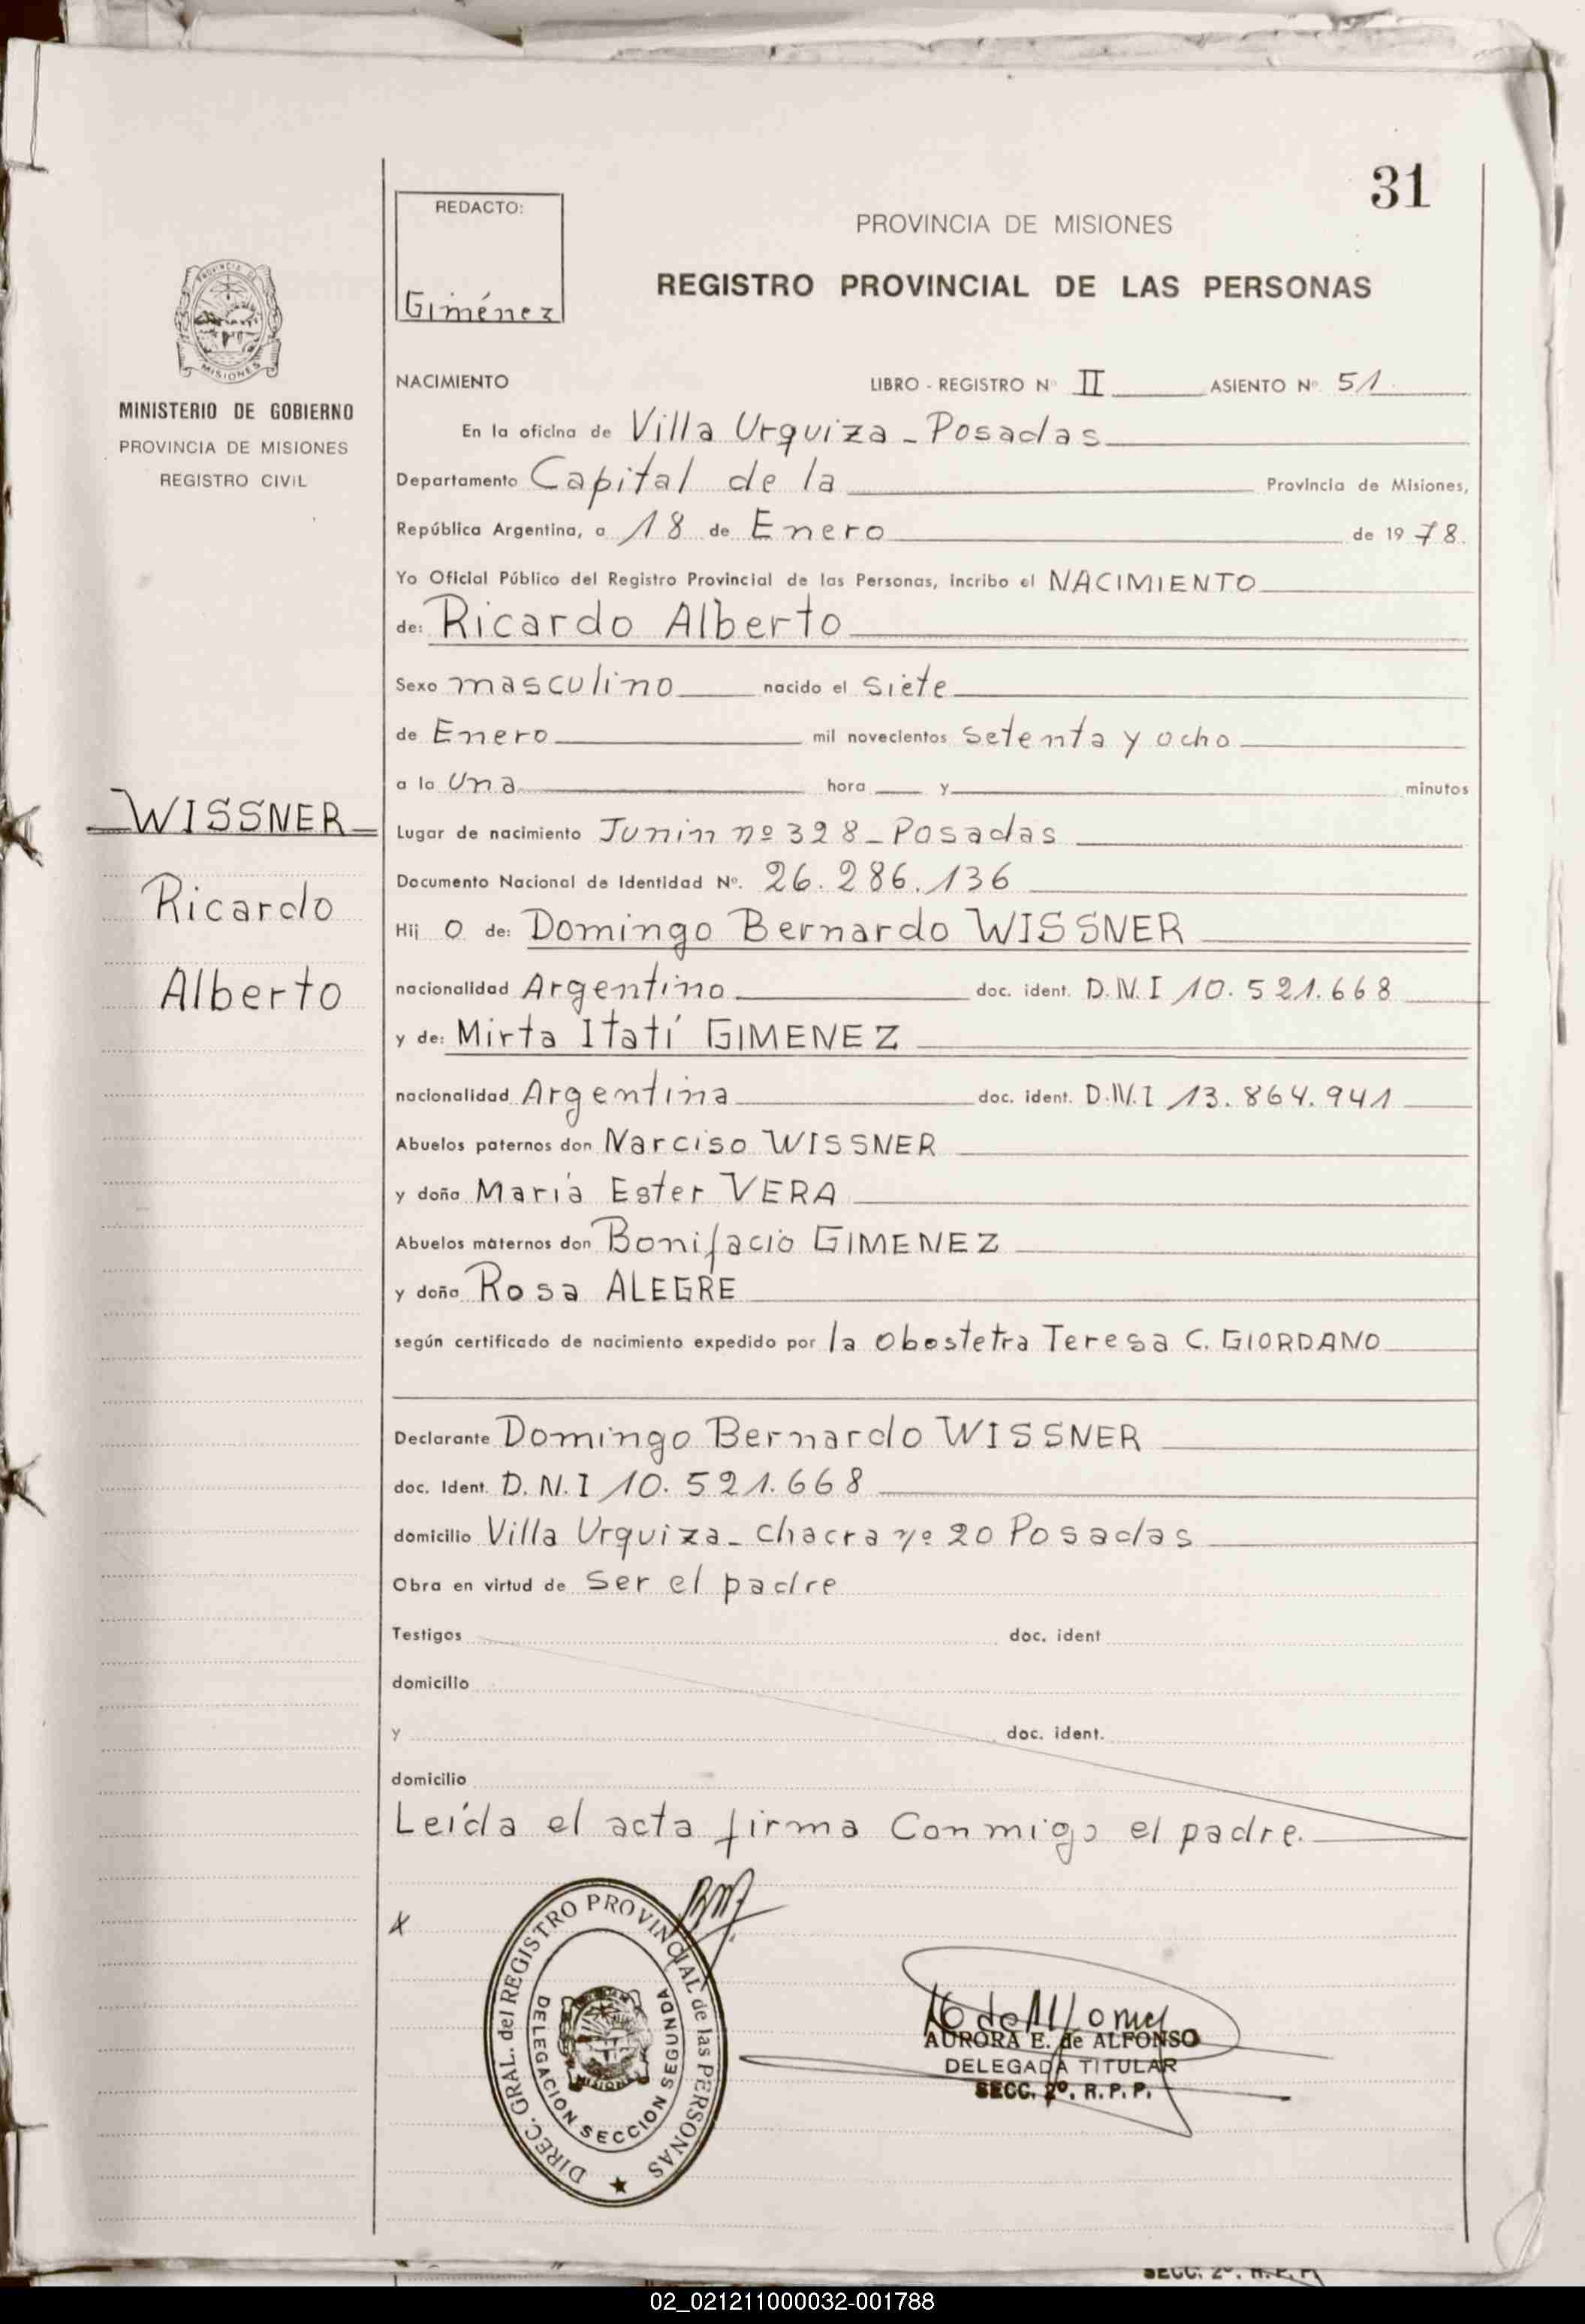 31
REDACTO:
Giménez
PROVINCIA DE MISIONES
REGISTRO PROVINCIAL DE LAS PERSONAS
PROVINCIA DE
MISIONES
MINISTERIO DE GOBIERNO
PROVINCIA DE MISIONES
REGISTRO CIVIL
NACIMIENTO LIBRO - REGISTRO Nº II ASIENTO Nº 51
En la oficina de Villa Urquiza - Posadas
Departamento Capital de la Provincia de Misiones,
República Argentina, a 18 de Enero de 1978.
Yo Oficial Público del Registro Provincial de las Personas, incribo el NACIMIENTO
de: Ricardo Alberto
Sexo masculino nacido el siete
de Enero mil novecientos setenta y ocho
a la una hora y minutos
WISSNER
Ricardo
Alberto
Lugar de nacimiento Junin nº 328 - Posadas
Documento Nacional de Identidad Nº. 26.286.136
Hij o de: Domingo Bernardo WISSNER
nacionalidad Argentino doc. ident. D.N.I 10.521.668
y de: Mirta Itatí GIMENEZ
nacionalidad Argentina doc. ident. D.N.I 13.864.941
Abuelos paternos don Narciso WISSNER
y doña María Ester VERA
Abuelos maternos don Bonifacio GIMENEZ
y doña Rosa ALEGRE
según certificado de nacimiento expedido por la Obostetra Teresa C. GIORDANO
Declarante Domingo Bernardo WISSNER
doc. Ident. D.N.I 10.521.668
domicilio Villa Urquiza - Chacra nº 20 Posadas
Obra en virtud de ser el padre
Testigos doc. ident
domicilio
y doc. ident.
domicilio
Leída el acta firma conmigo el padre.
DIREC. GRAL. del REGISTRO PROVINCIAL de las PERSONAS
DELEGACION SECCION SEGUNDA
MISIONES
AURORA E. de ALFONSO
DELEGADA TITULAR
SECC. 2º. R.P.P.
SECC. 2º. R.P.P.
02_021211000032-001788